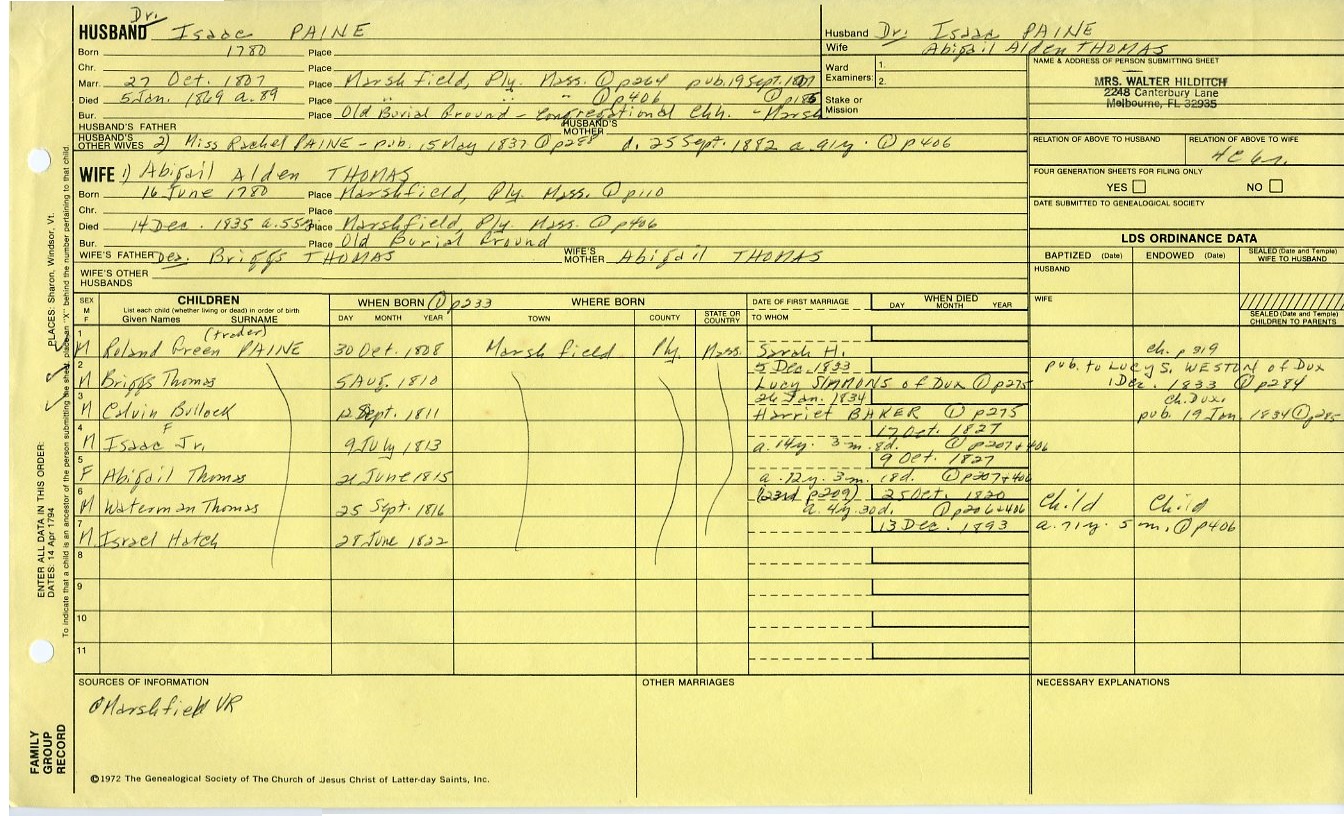 Dr.
HUSBAND Isaac PAINE
Born 1780 Place
Chr. Place
Marr. 27 Oct. 1807 Place Marshfield, Ply. Mass. ① p264 pub. 19 Sept. 1807
Died 5 Jan. 1869 a. 89 Place " " " ① p406 ①
Bur. Place Old Burial Ground - Congregational Chh. - Marsh
HUSBAND'S FATHER HUSBAND'S MOTHER
HUSBAND'S OTHER WIVES 2) Miss Rachel PAINE - pub. 15 May 1837 ① p288 d. 25 Sept. 1882 a. 91y. ① p406
WIFE 1) Abigail Alden THOMAS
Born 16 June 1780 Place Marshfield, Ply. Mass. ① p110
Chr. Place
Died 14 Dec. 1835 a. 55y. Place Marshfield, Ply. Mass. ① p406
Bur. Place Old Burial Ground
WIFE'S FATHER Dea. Briggs THOMAS WIFE'S MOTHER Abigail THOMAS
WIFE'S OTHER HUSBANDS
Husband Dr. Isaac PAINE
Wife Abigail Alden THOMAS
Ward 1.
Examiners: 2.
Stake or Mission
NAME & ADDRESS OF PERSON SUBMITTING SHEET
MRS. WALTER HILDITCH
2248 Canterbury Lane
Melbourne, FL 32935
RELATION OF ABOVE TO HUSBAND RELATION OF ABOVE TO WIFE
4C6r.
FOUR GENERATION SHEETS FOR FILING ONLY
YES NO
DATE SUBMITTED TO GENEALOGICAL SOCIETY
LDS ORDINANCE DATA
BAPTIZED (Date) ENDOWED (Date) SEALED (Date and Temple) WIFE TO HUSBAND
HUSBAND
WIFE
SEALED (Date and Temple) CHILDREN TO PARENTS
SEX M F CHILDREN WHEN BORN ① p233 WHERE BORN DATE OF FIRST MARRIAGE WHEN DIED
List each child (whether living or dead) in order of birth
Given Names SURNAME DAY MONTH YEAR TOWN COUNTY STATE OR COUNTRY TO WHOM DAY MONTH YEAR
(trader)
1 M Roland Green PAINE 30 Oct. 1808 Marshfield Ply. Mass. Sarah H. ch. p 319
5 Dec. 1833 pub. to Lucy S. WESTON of Dux
2 M Briggs Thomas 5 Aug. 1810 Lucy SIMMONS of Dux ① p275 1 Dec. 1833 ① p284
26 Jan. 1834 ch. Dux.
3 M Calvin Bullock 12 Sept. 1811 Harriet BAKER ① p275 pub. 19 Jan. 1834 ① p285
F 17 Oct. 1827
4 M Isaac Jr. 9 July 1813 a. 14y. 3 m. 8d. ① p207 + 406
9 Oct. 1827
5 F Abigail Thomas 21 June 1815 a. 12y. 3 m. 18d. ① p207 + 406
(23rd p209) 25 Oct. 1820
6 M Waterman Thomas 25 Sept. 1816 a. 4y. 30d. ① p206 + 406 Child Child
13 Dec. 1893
7 M Israel Hatch 28 June 1822 a. 71y. 5 m. ① p406
8
9
10
11
SOURCES OF INFORMATION OTHER MARRIAGES NECESSARY EXPLANATIONS
① Marshfield VR
©1972 The Genealogical Society of The Church of Jesus Christ of Latter-day Saints, Inc.
ENTER ALL DATA IN THIS ORDER:
DATES: 14 Apr 1794 PLACES: Sharon, Windsor, Vt.
To indicate that a child is an ancestor of the person submitting the sheet, place an "X" behind the number pertaining to that child.
FAMILY
GROUP
RECORD